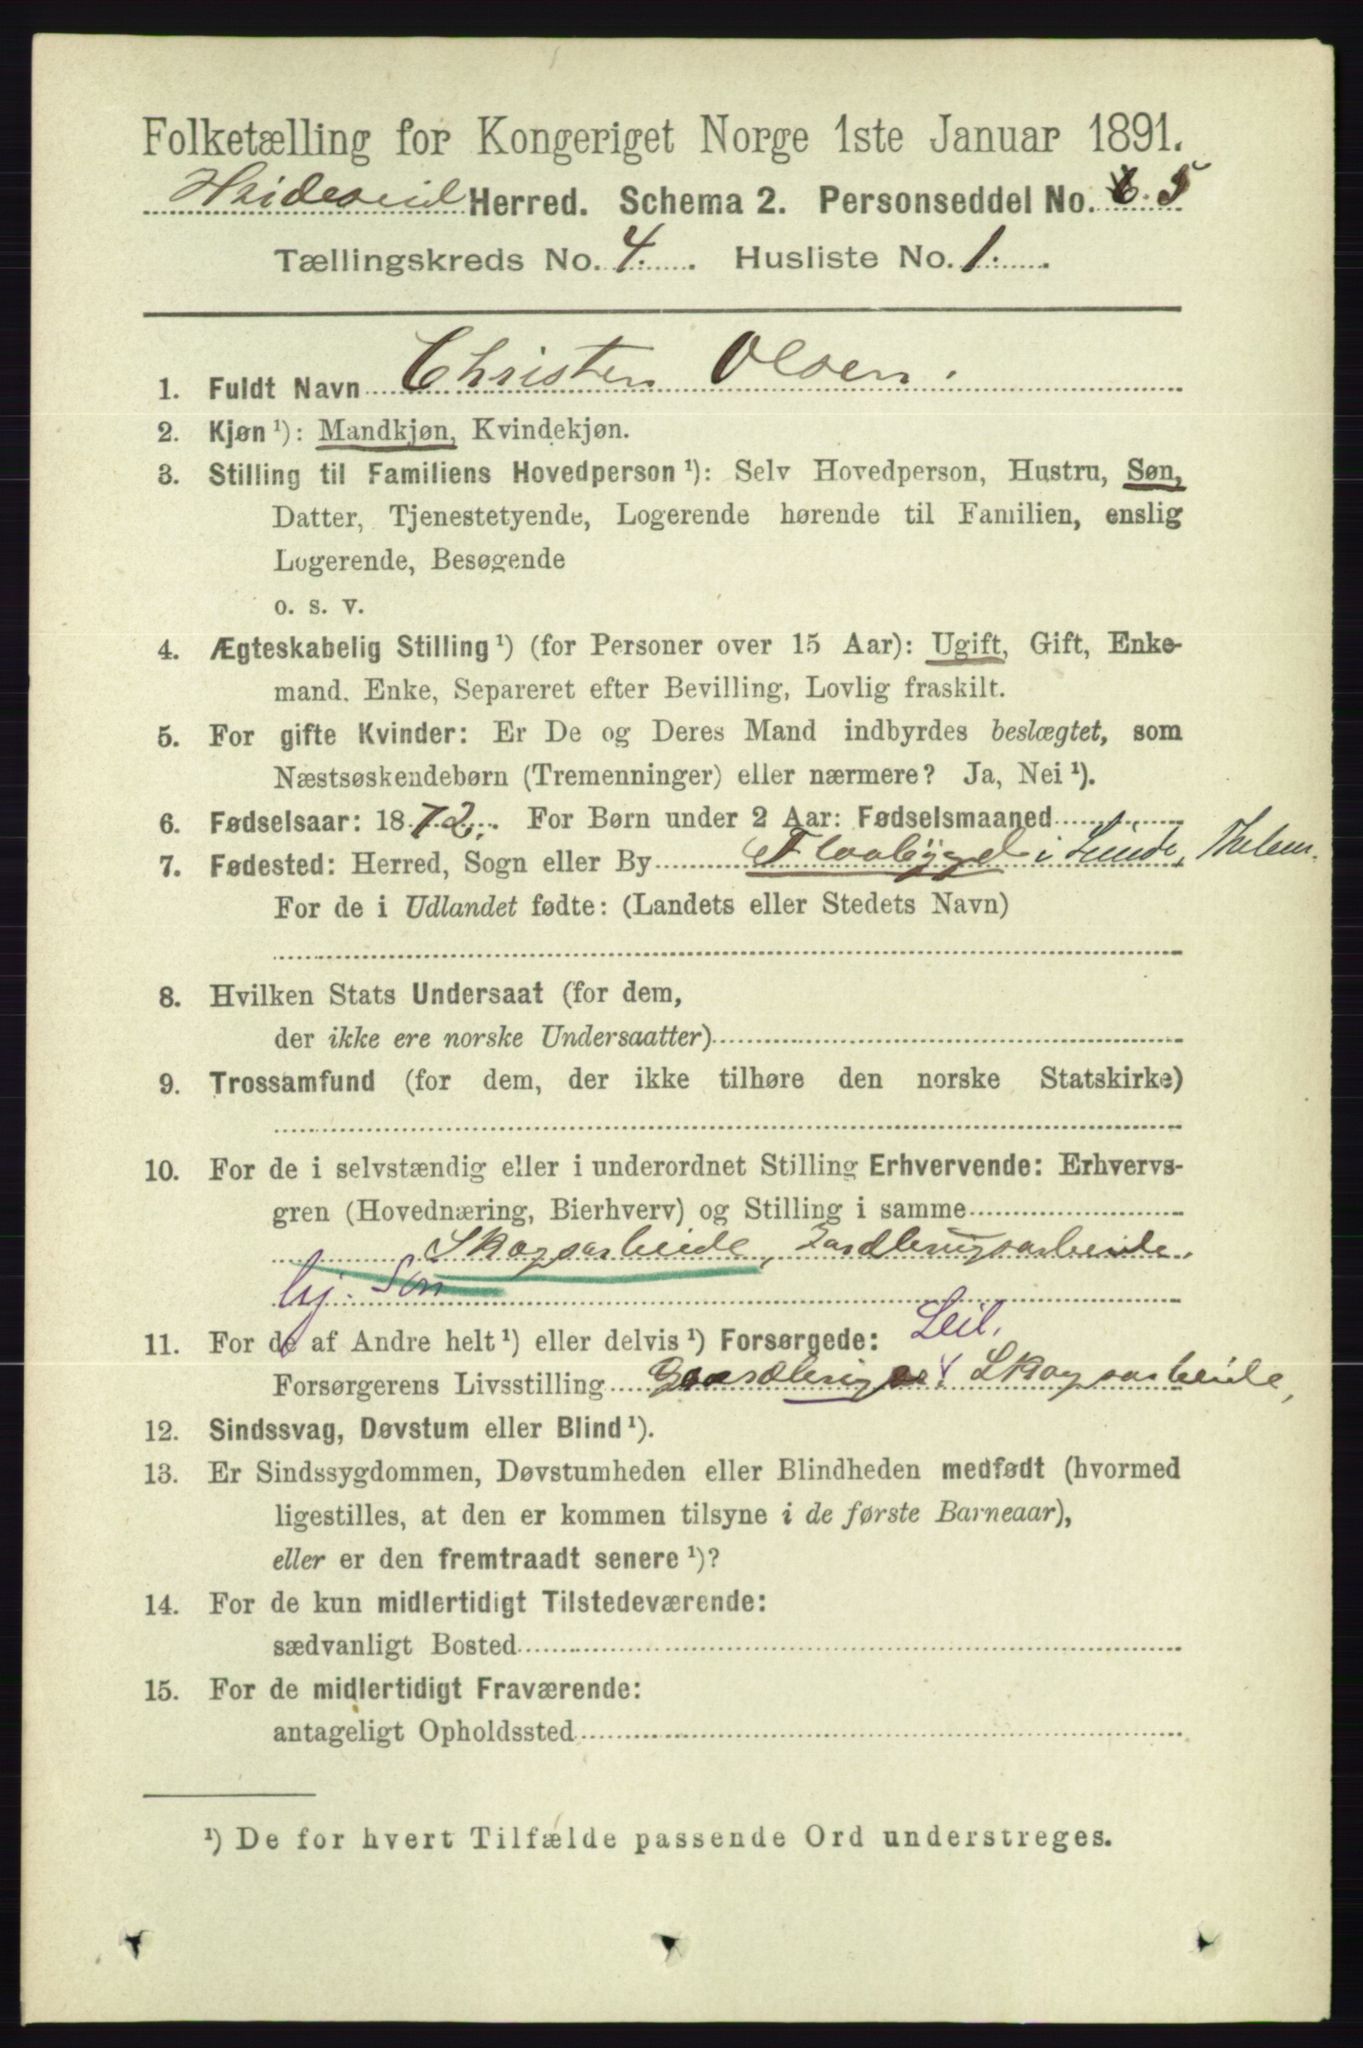 Folketælling for Kongeriget Norge 1ste Januar 1891.
Hvideseid Herred. Schema 2. Personseddel No. 6. 5
Tællingskreds No. 4. Husliste No. 1.
1. Fuldt Navn Christen Olsen.
2. Kjøn ¹): Mandkjøn, Kvindekjøn.
3. Stilling til Familiens Hovedperson ¹): Selv Hovedperson, Hustru, Søn,
Datter, Tjenestetyende, Logerende hørende til Familien, enslig
Logerende, Besøgende
o. s. v.
4. Ægteskabelig Stilling ¹) (for Personer over 15 Aar): Ugift, Gift, Enke-
mand. Enke, Separeret efter Bevilling, Lovlig fraskilt.
5. For gifte Kvinder: Er De og Deres Mand indbyrdes beslægtet, som
Næstsøskendebørn (Tremenninger) eller nærmere? Ja, Nei ¹).
6. Fødselsaar: 1872. For Børn under 2 Aar: Fødselsmaaned
7. Fødested: Herred, Sogn eller By Flaabygd i Lunde, Thelem.
For de i Udlandet fødte: (Landets eller Stedets Navn)
8. Hvilken Stats Undersaat (for dem,
der ikke ere norske Undersaatter)
9. Trossamfund (for dem, der ikke tilhøre den norske Statskirke)
10. For de i selvstændig eller i underordnet Stilling Erhvervende: Erhvervs-
gren (Hovednæring, Bierhverv) og Stilling i samme
Skogsarbeide, Jordbrugsarbeide.
hj. Søn
11. For de af Andre helt ¹) eller delvis ¹) Forsørgede: Leil.
Forsørgerens Livsstilling Gaardbruger Skogsarbeide,
12. Sindssvag, Døvstum eller Blind ¹).
13. Er Sindssygdommen, Døvstumheden eller Blindheden medfødt (hvormed
ligestilles, at den er kommen tilsyne i de første Barneaar),
eller er den fremtraadt senere ¹)?
14. For de kun midlertidigt Tilstedeværende:
sædvanligt Bosted
15. For de midlertidigt Fraværende:
antageligt Opholdssted
¹) De for hvert Tilfælde passende Ord understreges.